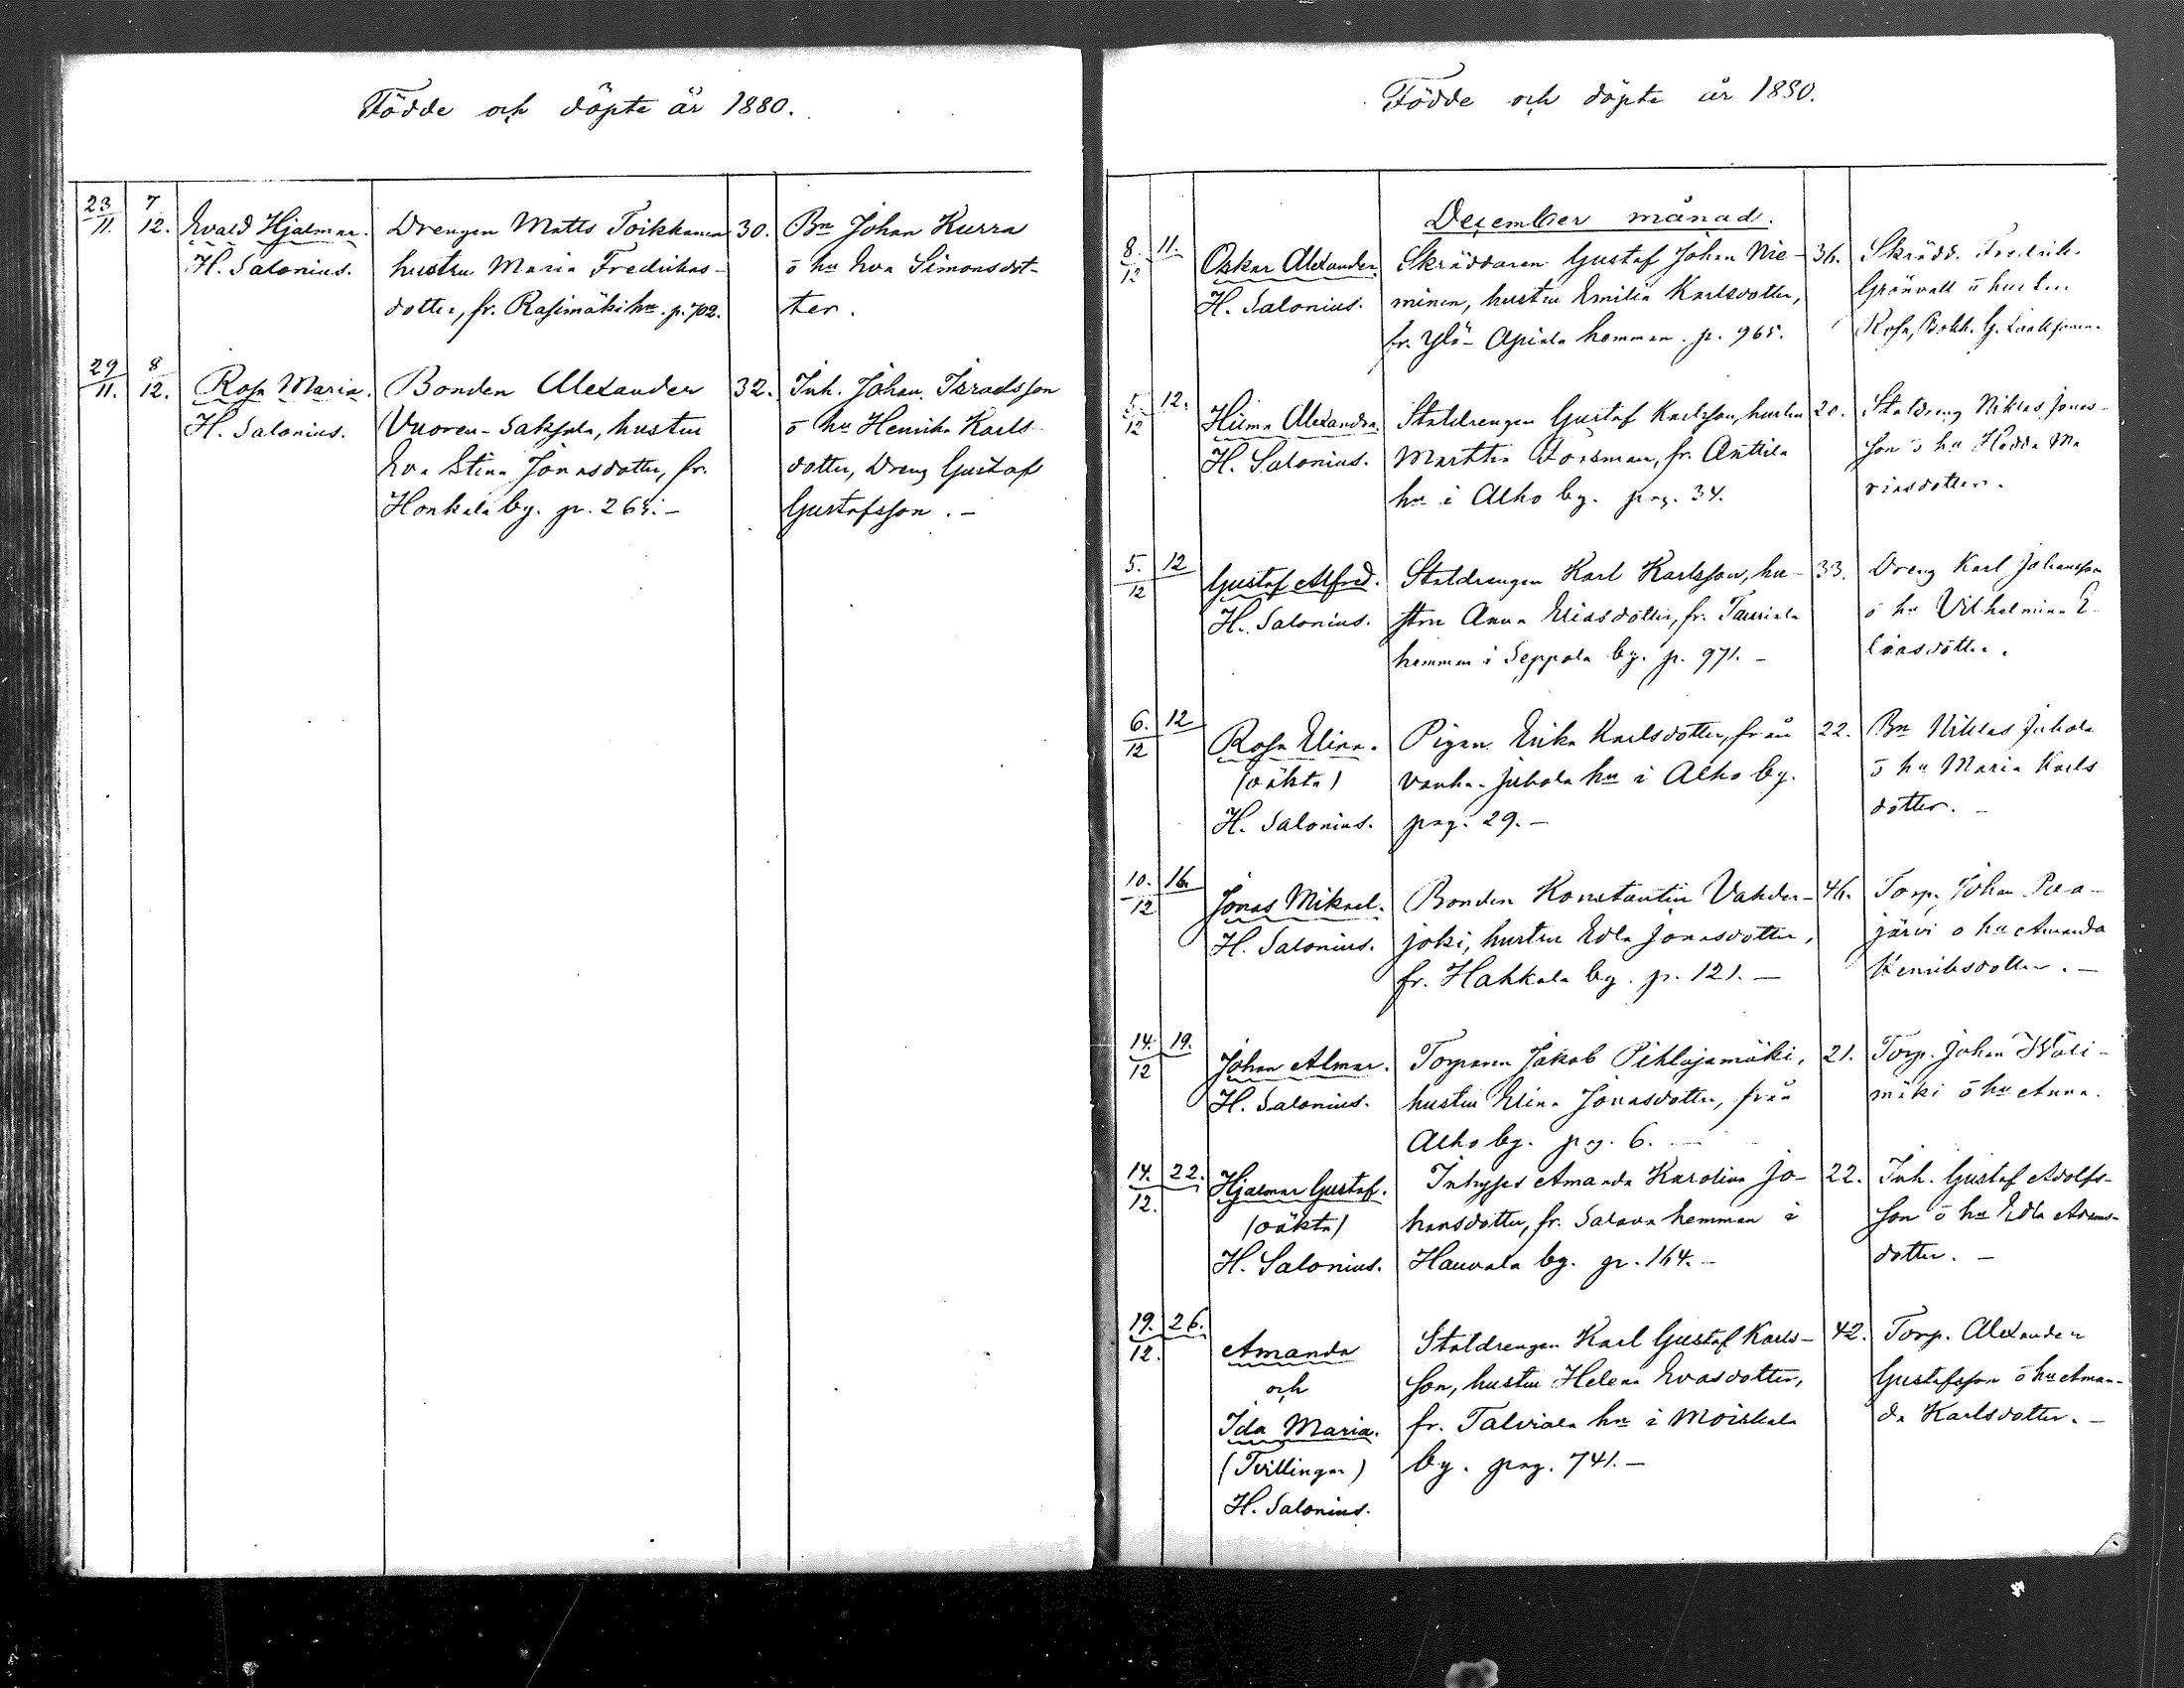 Födde och döpte år 1880.
23/11. 7/12. Evald Hjalmar. Drengen Matts Toikkanen 30. Bn Johan Kurra
H. Salonius. hustru Maria Fredriks- ō hu Eva Simonsdot-
dotter, fr. Rasimäki hn. p. 702. ter.
29/11. 8/12. Rosa Maria. Bonden Alexander 32. Inh. Johan Israelsson
H. Salonius. Vuoren-Saksala, hustru ō hu Henrika Karls-
Eva Stina Jonasdotter, fr. dotter, Dreng Gustaf
Honkala by. p. Gustafsson. -
Födde och döpte år 1880.
December månad.
8/12 11. Oskar Alexander. Skräddaren Gustaf Johan Nie- 36. Skrädd. Fredrik
H. Salonius. minen, hustru Emilia Karlsdotter, Grönvall ō hustru
fr. Ylö-Apiala hemman. p. 965. Rosa,
5/12 12. Hilma Alexandra. Staldrengen Gustaf Karlsson, hustru 20. Staldreng Niklas Jonas-
H. Salonius. Martta Forsman, fr. Anttila son ō hu Hedda Ma
hn i Alho by. pag. 34. riasdotter.
5./12 12 Gustaf Alfred. Staldrengen Karl Karlsson, hu- 33. Dreng Karl Johansson
H. Salonius. stru Anna Eliasdotter, fr. Tauriala ō hu Vilhelmina E-
hemman i Seppola by. p. 971. - liasdotter.
6./12 12 Rosa Elina. Pigan Erika Karlsdotter, från 22. Bn Niklas Juhola
(oäkta) Vanha-Juhola hn i Alho by. ō hu Maria Karls
H. Salonius. pag. 29. - dotter. -
10./12 16. Jonas Mikael. Bonden Konstantin Vahder- 46. Torp. Johan
H. Salonius. joki, hustru Edla Jonasdotter, järvi o hu Amanda
fr. Hakkala by. p. 121. - Henriksdotter. -
14./12 19. Johan Almar. Torparen Jakob Pihlajamäki, 21. Torp. Johan
H. Salonius. hustru Elina Jonasdotter, från mäki ō hu Anna.
Alho by. pag. 6. -
14./12. 22. Hjalmar Gustaf. Inhyses Amanda Karolina Jo- 22. Inh. Gustaf Adolfs-
(oäkta) hansdotter, fr. Salava hemman i son ō hu Edla Adams-
H. Salonius. Hauvala by. p. 164. - dotter. -
19./12. 26. Amanda Staldrengen Karl Gustaf Karls- 42. Torp. Alexander
och son, hustru Helena Evasdotter, Gustafsson ō hu Aman-
Ida Maria. fr. Talviala hn i Moiskala da Karlsdotter. -
(Tvillingar) by. pag. 741. -
H. Salonius.